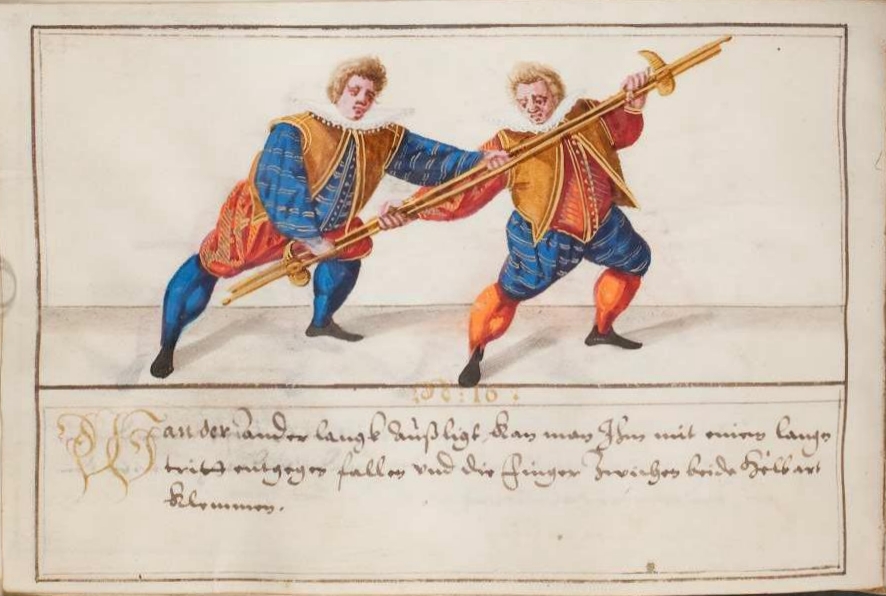 N: 10.
Wan der ander langk außligt kan man Ihm mit einem langn
tritt entgegen fallen vnd die finger zwischen beide Helbart
klemmen.